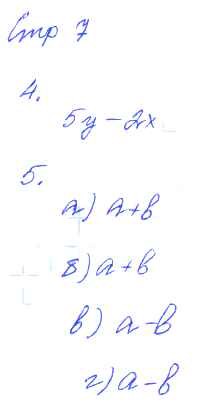 Стр 7
4.
5y-2x
5.
а) a+b
б) a+b
в) a-b
г) a-b